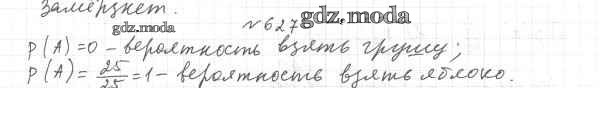 замёрзнет.
gdz.moda
№ 627 gdz.moda
P(A) = 0 – вероятность взять грушу;
P(A) = 25/25 = 1 – вероятность взять яблоко.